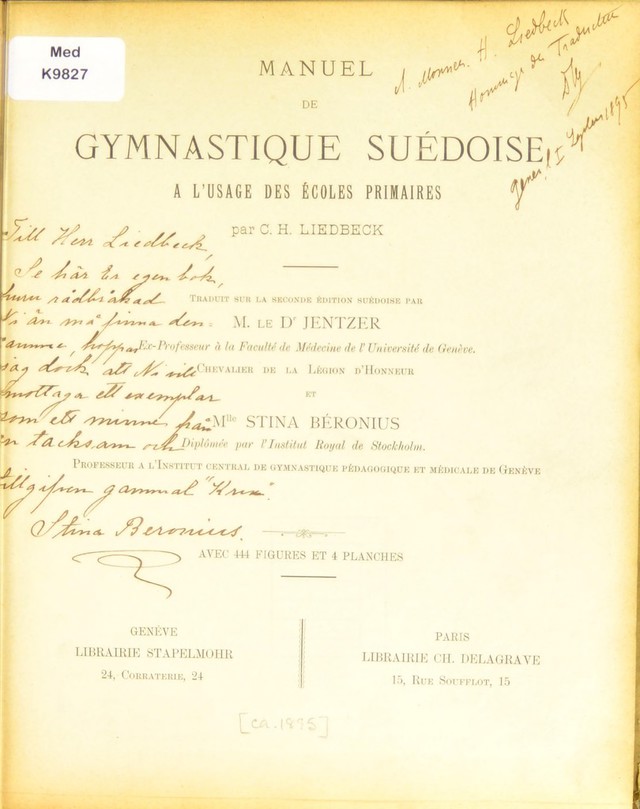 Med
K9827
A Monsieur H. Liedbeck
Hommage du Traducteur
Genève, 1895
MANUEL
DE
GYMNASTIQUE SUÉDOISE
A L'USAGE DES ÉCOLES PRIMAIRES
par C. H. LIEDBECK
Till Herr Liedbeck,
Se här Er egen bok,
huru rådbråkad
Ni än må finna den
samma, hoppas
jag dock att Ni vill
mottaga ett exemplar
som ett minne från
en tacksam och
tillgifven gammal "Krux".
Stina Beronius.
TRADUIT SUR LA SECONDE ÉDITION SUÉDOISE PAR
M. LE Dr JENTZER
Ex-Professeur à la Faculté de Médecine de l'Université de Genève.
CHEVALIER DE LA LÉGION D'HONNEUR
ET
Mlle STINA BÉRONIUS
Diplômée par l'Institut Royal de Stockholm.
PROFESSEUR A L'INSTITUT CENTRAL DE GYMNASTIQUE PÉDAGOGIQUE ET MÉDICALE DE GENÈVE
AVEC 444 FIGURES ET 4 PLANCHES
GENÉVE
LIBRAIRIE STAPELMOHR
24, CORRATERIE, 24
PARIS
LIBRAIRIE CH. DELAGRAVE
15, RUE SOUFFLOT, 15
[ca. 1895]